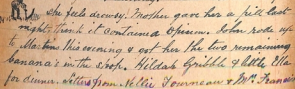 she feels drowsy. Mother gave her a pill last
night think it contained Opium. John rode up
to Martins this evening & got her the two remaining
banana's in the shop. Hildah Gribble & Ella
for dinner. Letters from Nellie Fourneau & Mrs Francis